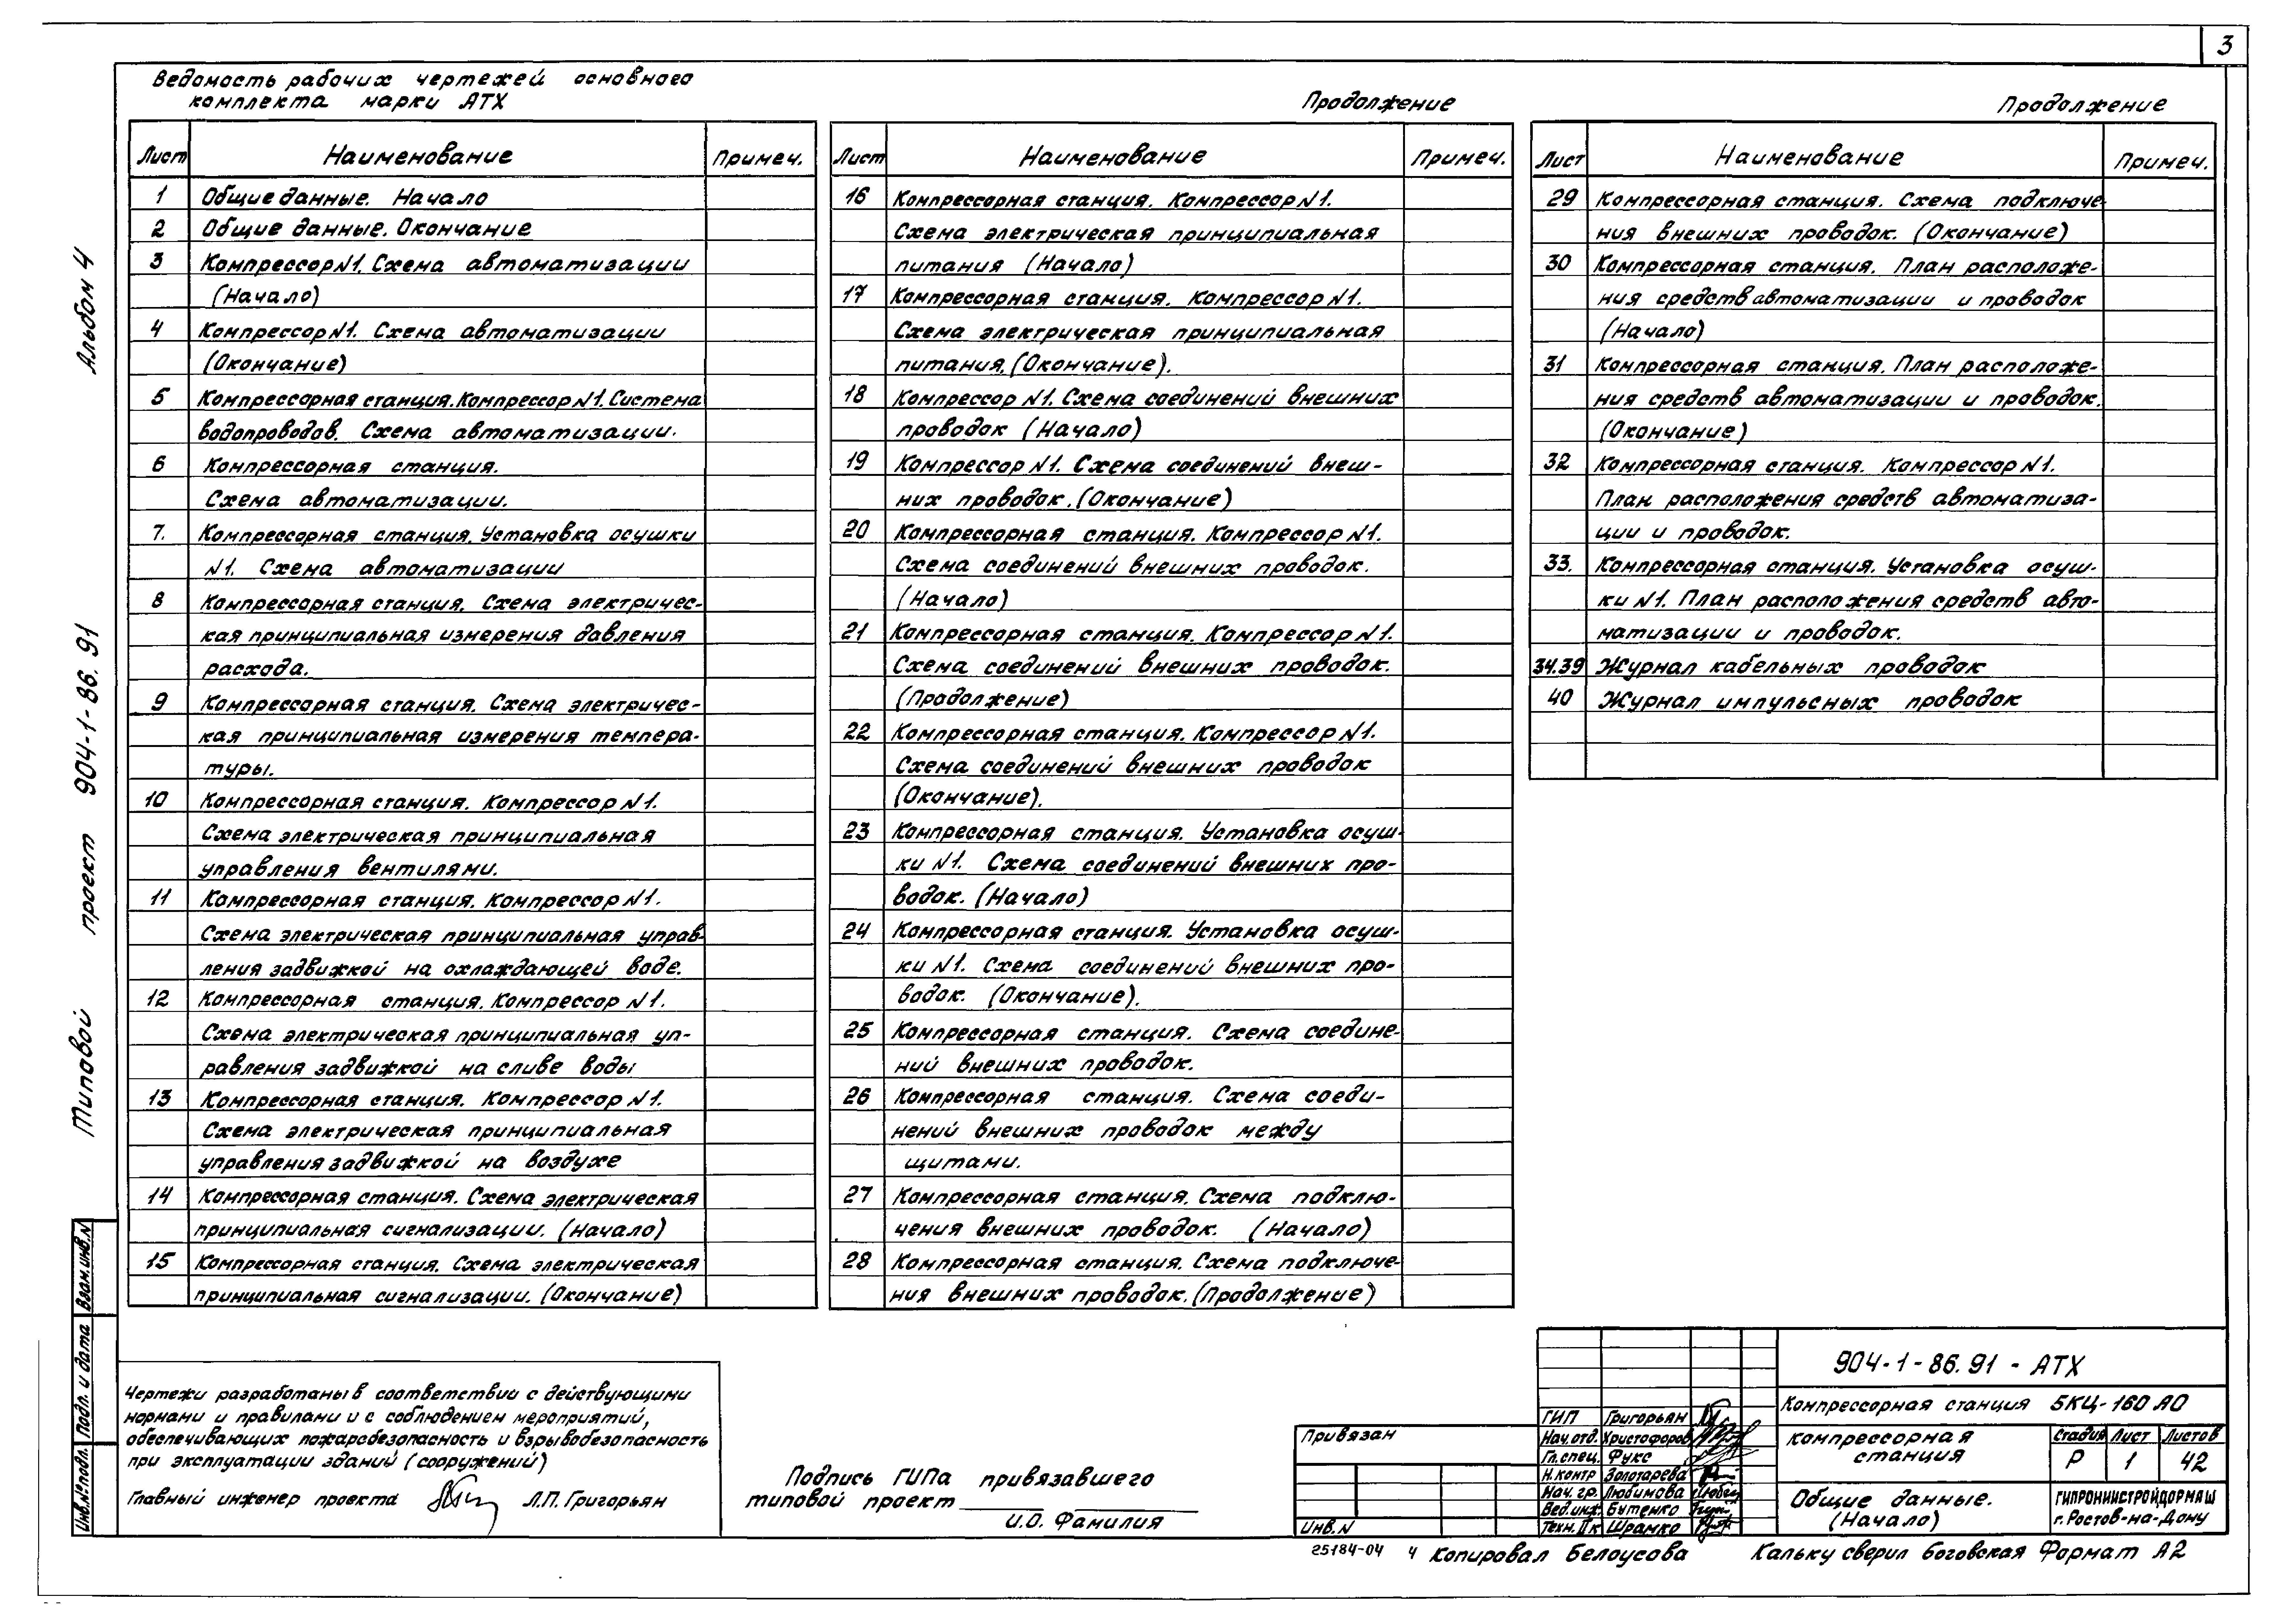 3
Ведомость рабочих чертежей основного
комплекта марки АТХ
Лист Наименование Примеч.
1 Общие данные. Начало
2 Общие данные. Окончание
3 Компрессор N1. Схема автоматизации
(Начало)
4 Компрессор N1. Схема автоматизации
(Окончание)
5 Компрессорная станция. Компрессор N1. Система
водопроводов. Схема автоматизации.
6 Компрессорная станция.
Схема автоматизации.
7. Компрессорная станция. Установка осушки
N1. Схема автоматизации
8 Компрессорная станция. Схема электричес-
кая принципиальная измерения давления
расхода.
9 Компрессорная станция. Схема электричес-
кая принципиальная измерения темпера-
туры.
10 Компрессорная станция. Компрессор N1.
Схема электрическая принципиальная
управления вентилями.
11 Компрессорная станция. Компрессор N1.
Схема электрическая принципиальная управ-
ления задвижкой на охлаждающей воде.
12 Компрессорная станция. Компрессор N1.
Схема электрическая принципиальная уп-
равления задвижкой на сливе воды
13 Компрессорная станция. Компрессор N1.
Схема электрическая принципиальная
управления задвижкой на воздухе
14 Компрессорная станция. Схема электрическая
принципиальная сигнализации. (Начало)
15 Компрессорная станция. Схема электрическая
принципиальная сигнализации. (Окончание)
Продолжение
Лист Наименование Примеч.
16 Компрессорная станция. Компрессор N1.
Схема электрическая принципиальная
питания (Начало)
17 Компрессорная станция. Компрессор N1.
Схема электрическая принципиальная
питания. (Окончание).
18 Компрессор N1. Схема соединений внешних
проводок (Начало)
19 Компрессор N1. Схема соединений внеш-
них проводок. (Окончание)
20 Компрессорная станция. Компрессор N1.
Схема соединений внешних проводок.
(Начало)
21 Компрессорная станция. Компрессор N1.
Схема соединений внешних проводок.
(Продолжение)
22 Компрессорная станция. Компрессор N1.
Схема соединений внешних проводок
(Окончание).
23 Компрессорная станция. Установка осуш-
ки N1. Схема соединений внешних про-
водок. (Начало)
24 Компрессорная станция. Установка осуш-
ки N1. Схема соединений внешних про-
водок. (Окончание).
25 Компрессорная станция. Схема соедине-
ний внешних проводок.
26 Компрессорная станция. Схема соеди-
нений внешних проводок между
щитами.
27 Компрессорная станция. Схема подклю-
чения внешних проводок. (Начало)
28 Компрессорная станция. Схема подключе-
ния внешних проводок. (Продолжение)
Продолжение
Лист Наименование Примеч.
29 Компрессорная станция. Схема подключе-
ния внешних проводок. (Окончание)
30 Компрессорная станция. План расположе-
ния средств автоматизации и проводок
(Начало)
31 Компрессорная станция. План расположе-
ния средств автоматизации и проводок.
(Окончание)
32 Компрессорная станция. Компрессор N1.
План расположения средств автоматиза-
ции и проводок.
33. Компрессорная станция. Установка осуш-
ки N1. План расположения средств авто-
матизации и проводок.
34.39 Журнал кабельных проводок
40 Журнал импульсных проводок
Альбом 4
Типовой проект 904-1-86.91
Взам.инв.N
Подп. и дата
Инв.№подл.
Чертежи разработаны в соответствии с действующими
нормами и правилами и с соблюдением мероприятий,
обеспечивающих пожаробезопасность и взрывобезопасность
при эксплуатации зданий (сооружений)
Главный инженер проекта Л.П. Григорьян
Подпись ГИПа привязавшего
типовой проект
И.О. Фамилия
Привязан
Инв.N
ГИП Григорьян
Нач.отд. Христофоров
Гл.спец. Фукс
Н.контр Золотарева
Нач. гр. Любимова
Вед.инж. Бутенко
Техн.IIк Шрамко
904-1-86.91 - АТХ
Компрессорная станция 5КЦ-160 АО
компрессорная
станция
Стадия Лист Листов
Р 1 42
Общие данные.
(Начало)
ГИПРОНИИСТРОЙДОРМАШ
г. Ростов-на-Дону
25184-04 4 Копировал Белоусова Кальку сверил Боговская Формат А2